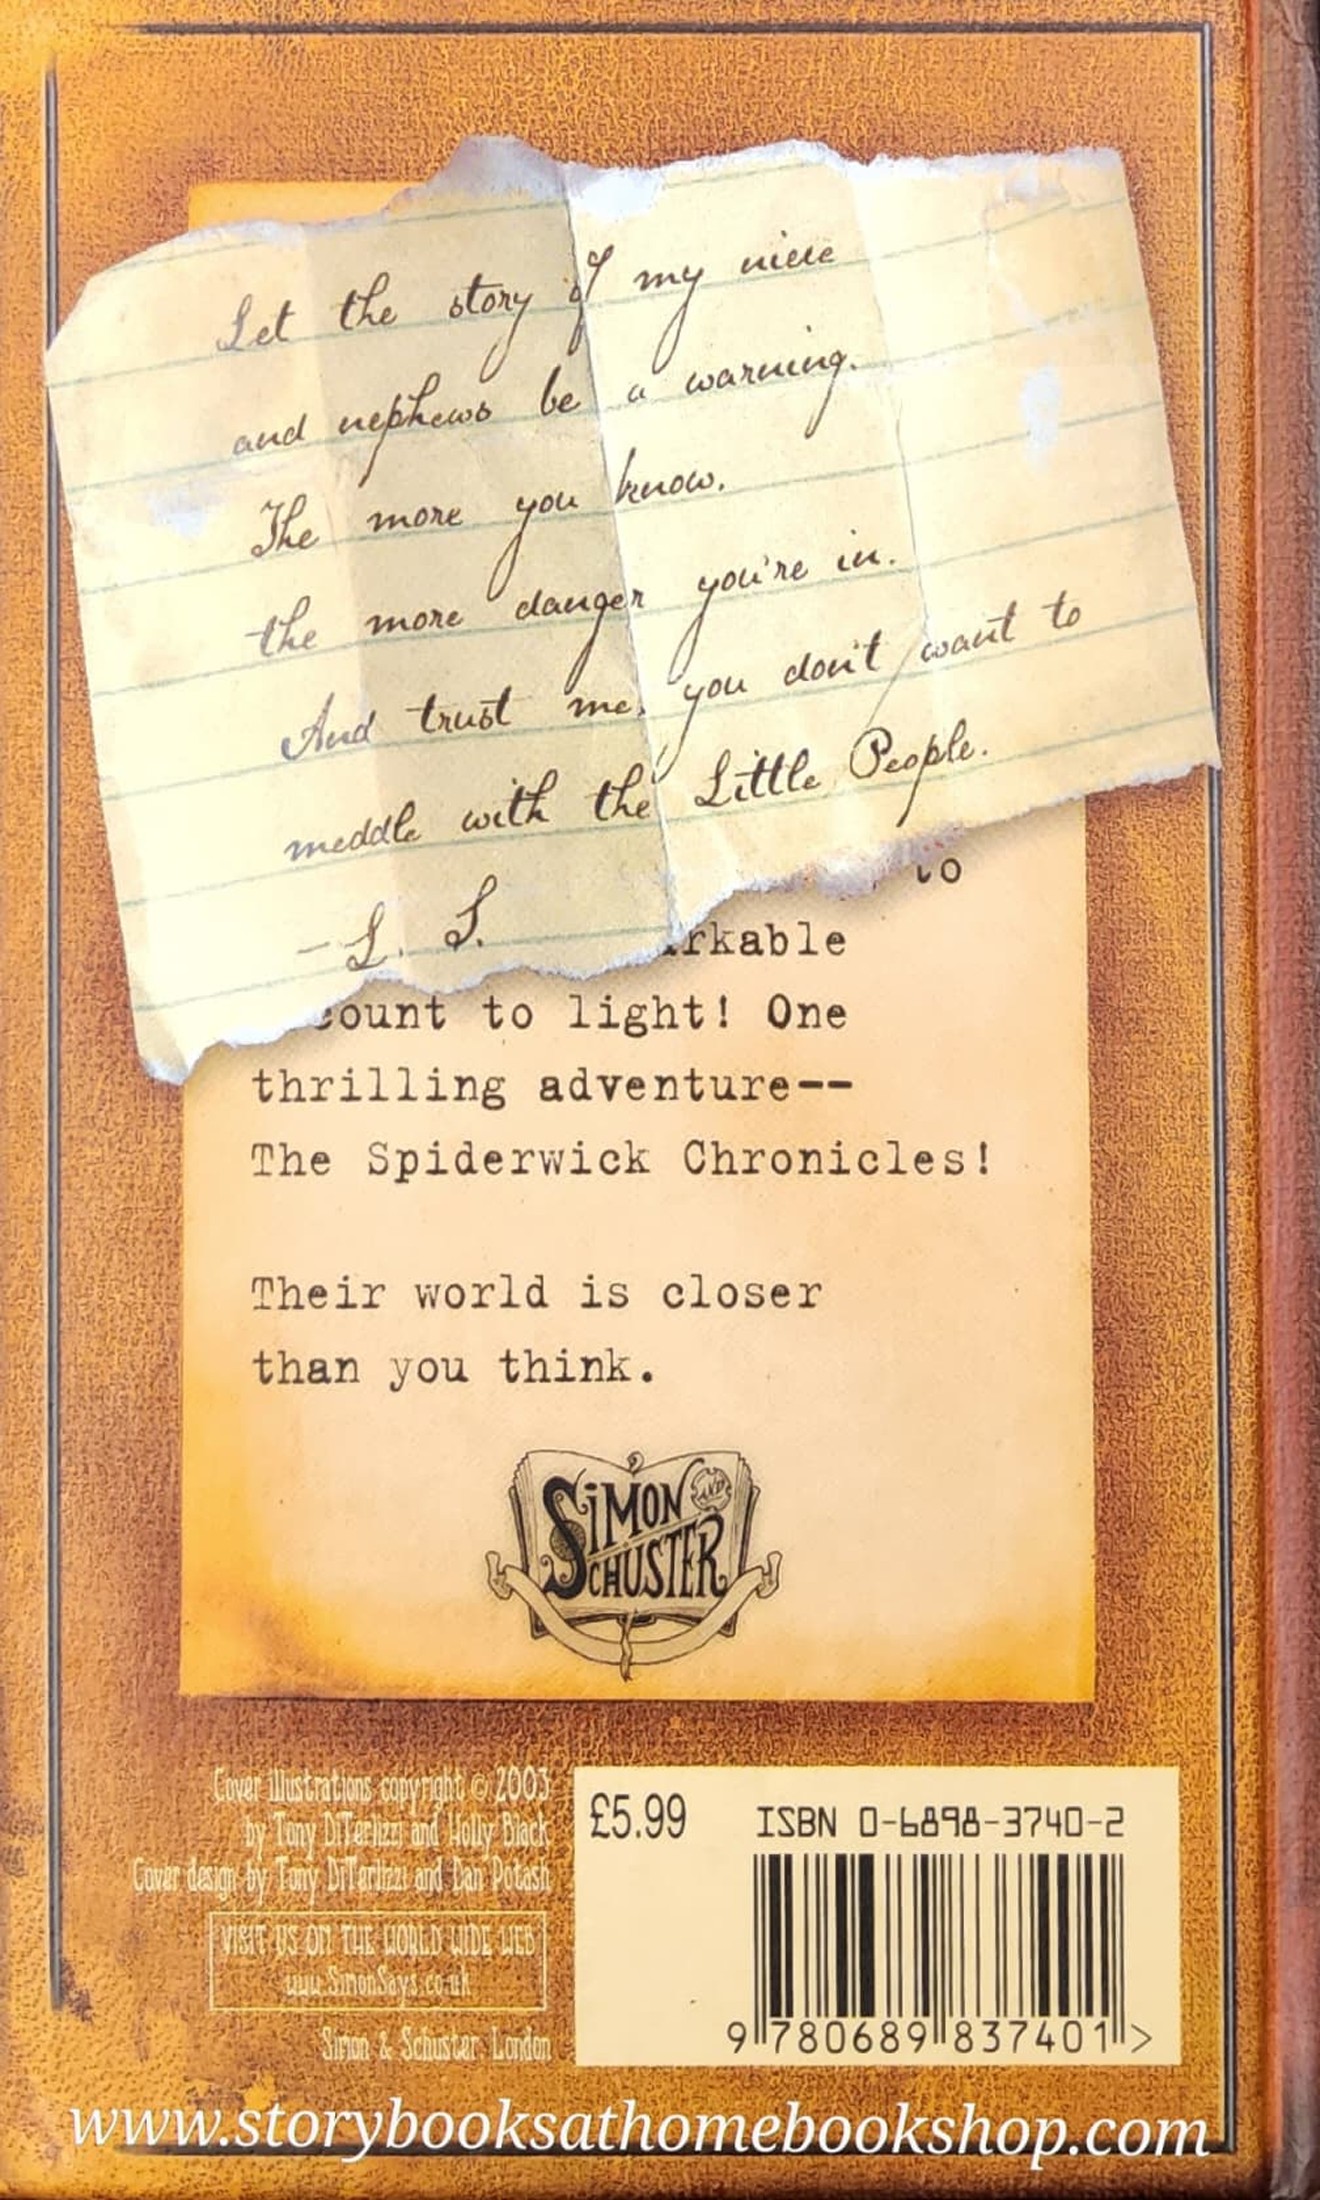 Let the story of my niece
and nephews be a warning.
The more you know,
the more danger you're in.
And trust me, you don't want to
meddle with the Little People.
—L. S.
to
rkable
count to light! One
thrilling adventure--
The Spiderwick Chronicles!
Their world is closer
than you think.
SIMON AND
SCHUSTER
Cover illustrations copyright © 2003
by Tony DiTerlizzi and Holly Black
Cover design by Tony DiTerlizzi and Dan Potash
VISIT US ON THE WORLD WIDE WEB
www.SimonSays.co.uk
Simon & Schuster, London
£5.99
ISBN 0-6898-3740-2
9 780689 837401 >
www.storybooksathomebookshop.com